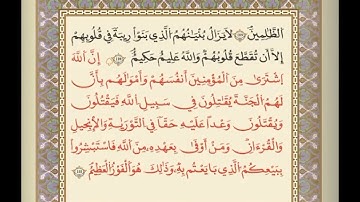 ٱلظَّٰلِمِينَ ۝١٠٩ لَا يَزَالُ بُنْيَٰنُهُمُ ٱلَّذِى بَنَوْا۟ رِيبَةً فِى قُلُوبِهِمْ
إِلَّآ أَن تَقَطَّعَ قُلُوبُهُمْ وَٱللَّهُ عَلِيمٌ حَكِيمٌ ۝١١٠ إِنَّ ٱللَّهَ
ٱشْتَرَىٰ مِنَ ٱلْمُؤْمِنِينَ أَنفُسَهُمْ وَأَمْوَٰلَهُم بِأَنَّ
لَهُمُ ٱلْجَنَّةَ يُقَٰتِلُونَ فِى سَبِيلِ ٱللَّهِ فَيَقْتُلُونَ
وَيُقْتَلُونَ وَعْدًا عَلَيْهِ حَقًّا فِى ٱلتَّوْرَىٰةِ وَٱلْإِنجِيلِ
وَٱلْقُرْءَانِ وَمَنْ أَوْفَىٰ بِعَهْدِهِۦ مِنَ ٱللَّهِ فَٱسْتَبْشِرُوا۟
بِبَيْعِكُمُ ٱلَّذِى بَايَعْتُم بِهِۦ وَذَٰلِكَ هُوَ ٱلْفَوْزُ ٱلْعَظِيمُ ۝١١١